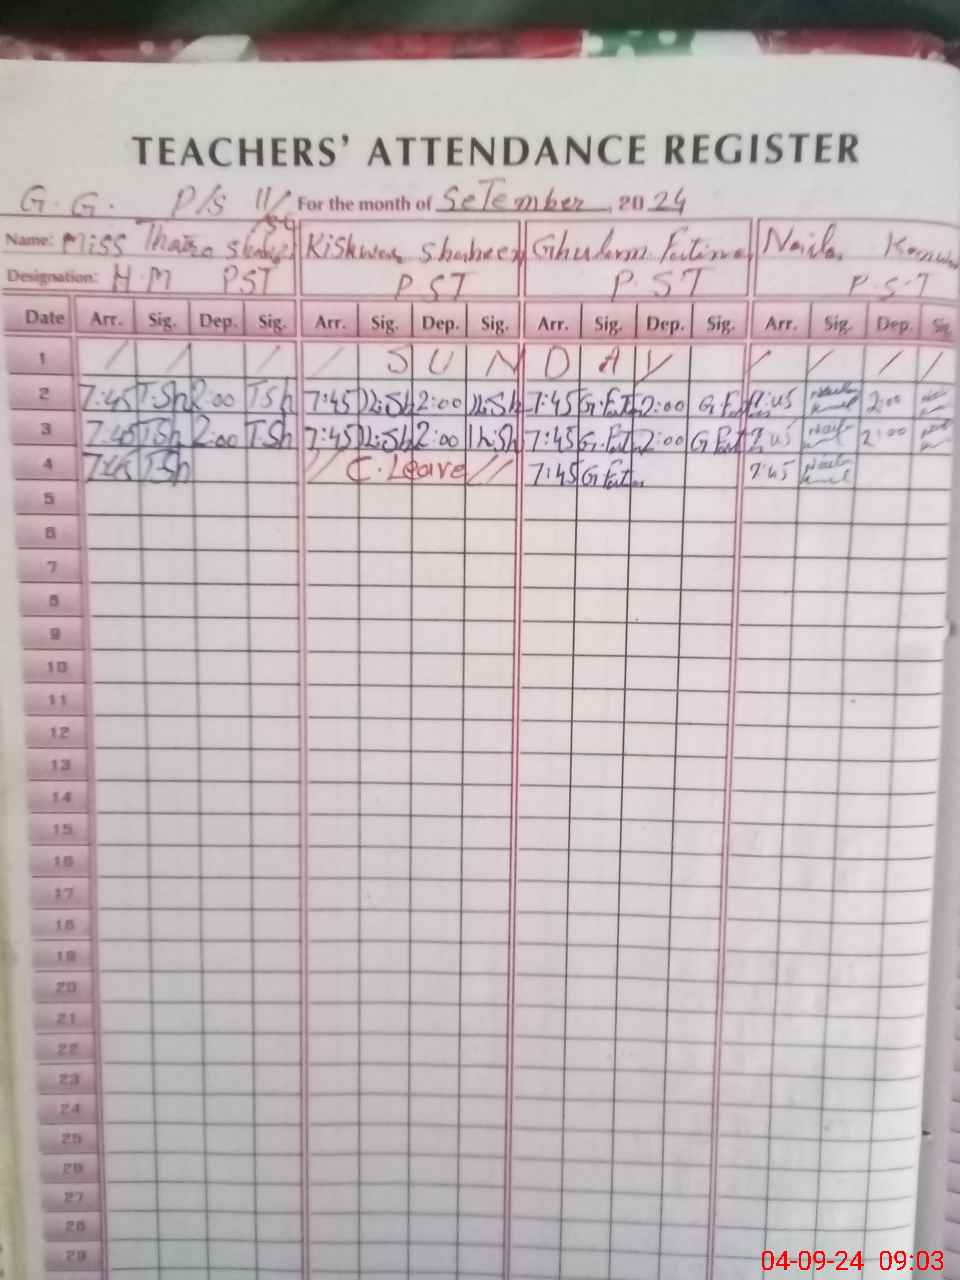 TEACHERS' ATTENDANCE REGISTER
G. G. P/S 11/ For the month of SeTember, 2024
Name: Miss Kishwar Shabeer Ghularm Fatima Naila
Designation: H M PST P ST P. ST P.S.T
Date Arr. Sig. Dep. Sig. Arr. Sig. Dep. Sig. Arr. Sig. Dep. Sig. Arr. Sig. Dep. Sig
1 / / / / S U N D A Y / / / /
2 7:45 T.Sh 2:00 TSh 7:45 2:00 7:45 G.Fat 2:00 G Fat 7:45 2:00
3 7:45 TSh 2:00 T.Sh 7:45 2:00 7:45 G.Fat 2:00 G Fat 7:45 2:00
4 7:45 T.Sh // C. Leave // 7:45 G Fat 7:45
5
6
7
8
9
10
11
12
13
14
15
16
17
18
19
20
21
22
23
24
25
26
27
28
29
04-09-24 09:03